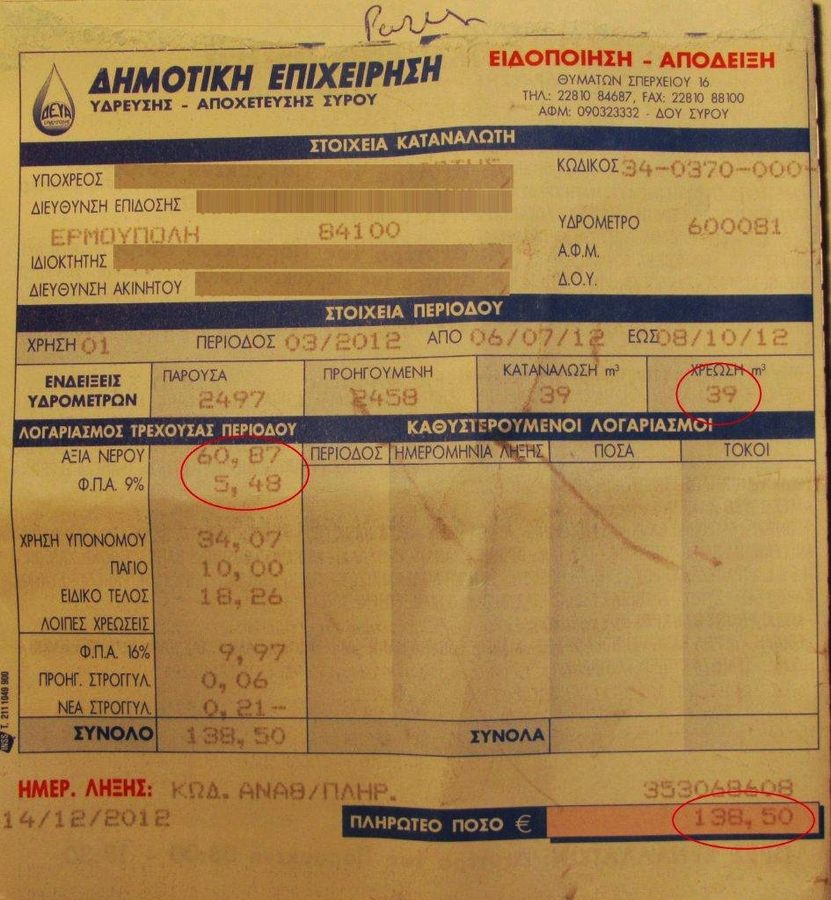 ΔΕΥΑ
ΔΗΜΟΤΙΚΗ ΕΠΙΧΕΙΡΗΣΗ
ΥΔΡΕΥΣΗΣ - ΑΠΟΧΕΤΕΥΣΗΣ ΣΥΡΟΥ
ΕΙΔΟΠΟΙΗΣΗ - ΑΠΟΔΕΙΞΗ
ΘΥΜΑΤΩΝ ΣΠΕΡΧΕΙΟΥ 16
ΤΗΛ.: 22810 84687, FAX: 22810 88100
ΑΦΜ: 090323332 - ΔΟΥ ΣΥΡΟΥ
ΣΤΟΙΧΕΙΑ ΚΑΤΑΝΑΛΩΤΗ
ΥΠΟΧΡΕΟΣ
ΚΩΔΙΚΟΣ 34-0370-000-
ΔΙΕΥΘΥΝΣΗ ΕΠΙΔΟΣΗΣ
ΕΡΜΟΥΠΟΛΗ 84100
ΥΔΡΟΜΕΤΡΟ 600081
ΙΔΙΟΚΤΗΤΗΣ
Α.Φ.Μ.
ΔΙΕΥΘΥΝΣΗ ΑΚΙΝΗΤΟΥ
Δ.Ο.Υ.
ΣΤΟΙΧΕΙΑ ΠΕΡΙΟΔΟΥ
ΧΡΗΣΗ 01 ΠΕΡΙΟΔΟΣ 03/2012 ΑΠΟ 06/07/12 ΕΩΣ 08/10/12
ΕΝΔΕΙΞΕΙΣ ΥΔΡΟΜΕΤΡΩΝ
ΠΑΡΟΥΣΑ ΠΡΟΗΓΟΥΜΕΝΗ ΚΑΤΑΝΑΛΩΣΗ m³ ΧΡΕΩΣΗ m³
2497 2458 39 39
ΛΟΓΑΡΙΑΣΜΟΣ ΤΡΕΧΟΥΣΑΣ ΠΕΡΙΟΔΟΥ ΚΑΘΥΣΤΕΡΟΥΜΕΝΟΙ ΛΟΓΑΡΙΑΣΜΟΙ
ΠΕΡΙΟΔΟΣ ΗΜΕΡΟΜΗΝΙΑ ΛΗΞΗΣ ΠΟΣΑ ΤΟΚΟΙ
ΑΞΙΑ ΝΕΡΟΥ 60,87
Φ.Π.Α. 9% 5,48
ΧΡΗΣΗ ΥΠΟΝΟΜΟΥ 34,07
ΠΑΓΙΟ 10,00
ΕΙΔΙΚΟ ΤΕΛΟΣ 18,26
ΛΟΙΠΕΣ ΧΡΕΩΣΕΙΣ
Φ.Π.Α. 16% 9,97
ΠΡΟΗΓ. ΣΤΡΟΓΓΥΛ. 0,06
ΝΕΑ ΣΤΡΟΓΓΥΛ. 0,21-
ΣΥΝΟΛΟ 138,50 ΣΥΝΟΛΑ
ΗΜΕΡ. ΛΗΞΗΣ: ΚΩΔ. ΑΝΑΘ/ΠΛΗΡ. 353068608
14/12/2012 ΠΛΗΡΩΤΕΟ ΠΟΣΟ € 138,50